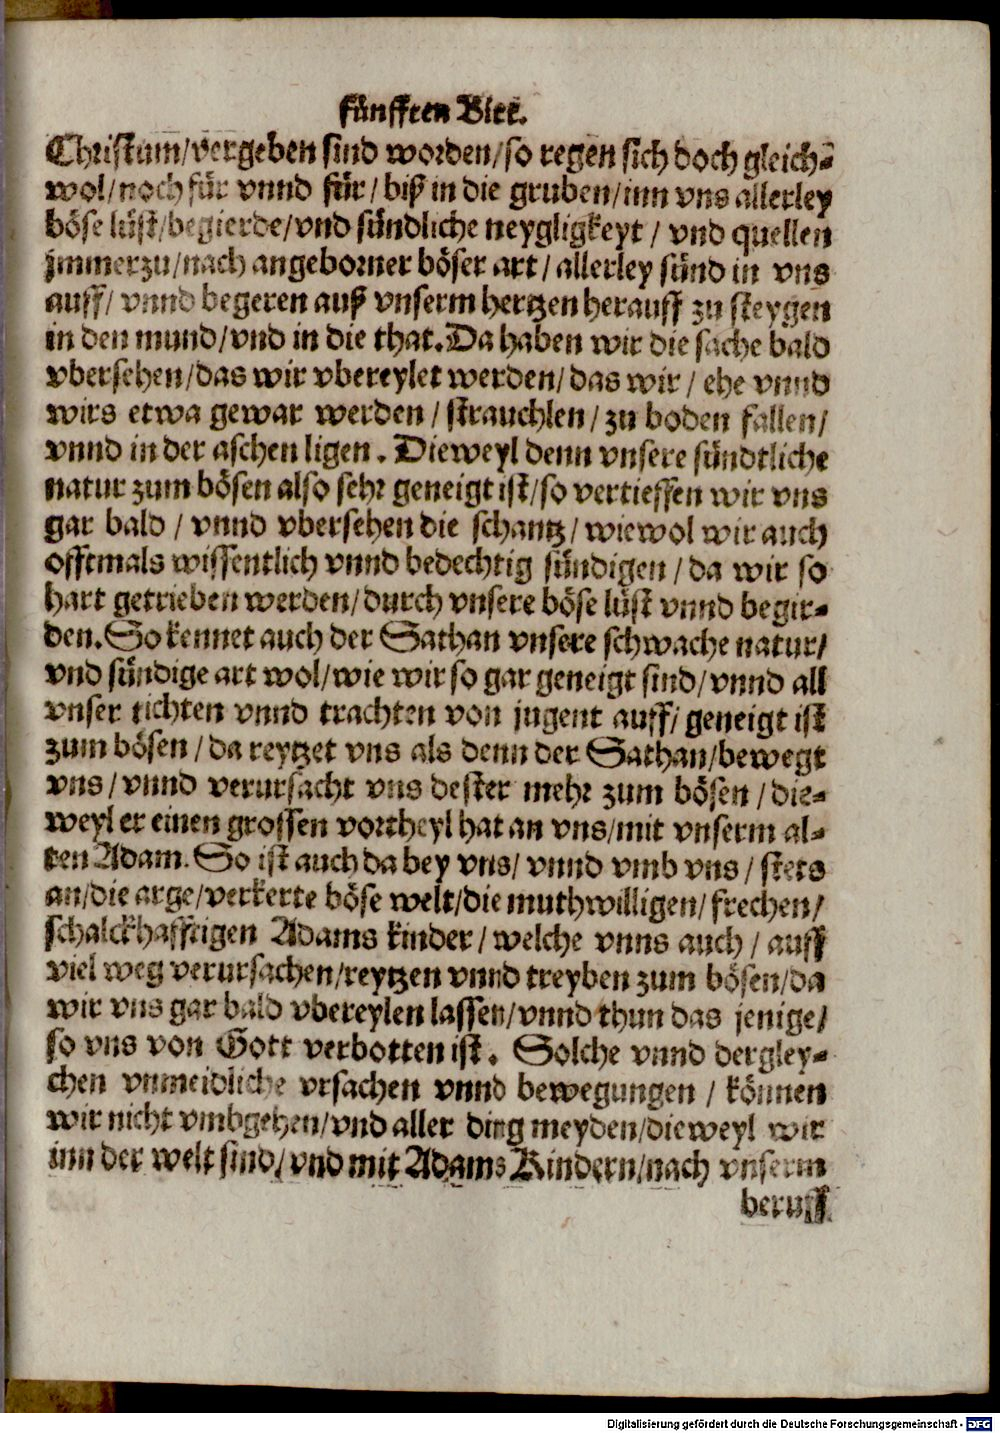 fünfften Bitt.
Christum/vergeben sind worden/so regen sich doch gleich-
wol/noch für vnnd für/biß in die gruben/inn vns allerley
böse lüst/begierde/vnd sündliche neygligkeyt/vnd quellen
jmmerzu/nach angeborner böser art/allerley sünd in vns
auff/vnnd begeren auß vnserm hertzen herauff zu steygen
in den mund/vnd in die that. Da haben wir die sache bald
vbersehen/das wir vbereylet werden/das wir/ehe vnnd
wirs etwa gewar werden/strauchlen/zu boden fallen/
vnnd in der aschen ligen. Dieweyl denn vnsere sündtliche
natur zum bösen also sehr geneigt ist/so vertieffen wir vns
gar bald/vnnd vbersehen die schantz/wiewol wir auch
offtmals wissentlich vnnd bedechtig sündigen/da wir so
hart getrieben werden/durch vnsere böse lüst vnnd begir-
den. So kennet auch der Sathan vnsere schwache natur/
vnd sündige art wol/wie wir so gar geneigt sind/vnnd all
vnser tichten vnnd trachten von jugent auff/geneigt ist
zum bösen/da reytzet vns als denn der Sathan/bewegt
vns/vnnd verursacht vns dester mehr zum bösen/die-
weyl er einen grossen vortheyl hat an vns/mit vnserm al-
ten Adam. So ist auch da bey vns/vnnd vmb vns/stets
an/die arge/verkerte böse welt/die muthwilligen/frechen/
schalckhafftigen Adams kinder/welche vnns auch/auff
viel weg verursachen/reytzen vnnd treyben zum bösen/da
wir vns gar bald vbereylen lassen/vnnd thun das jenige/
so vns von Gott verbotten ist. Solche vnnd dergley-
chen vnmeidliche vrsachen vnnd bewegungen/können
wir nicht vmbgehen/vnd aller ding meyden/dieweyl wir
inn der welt sind/vnd mit Adams Kindern/nach vnserm
beruff
Digitalisierung gefördert durch die Deutsche Forschungsgemeinschaft - DFG